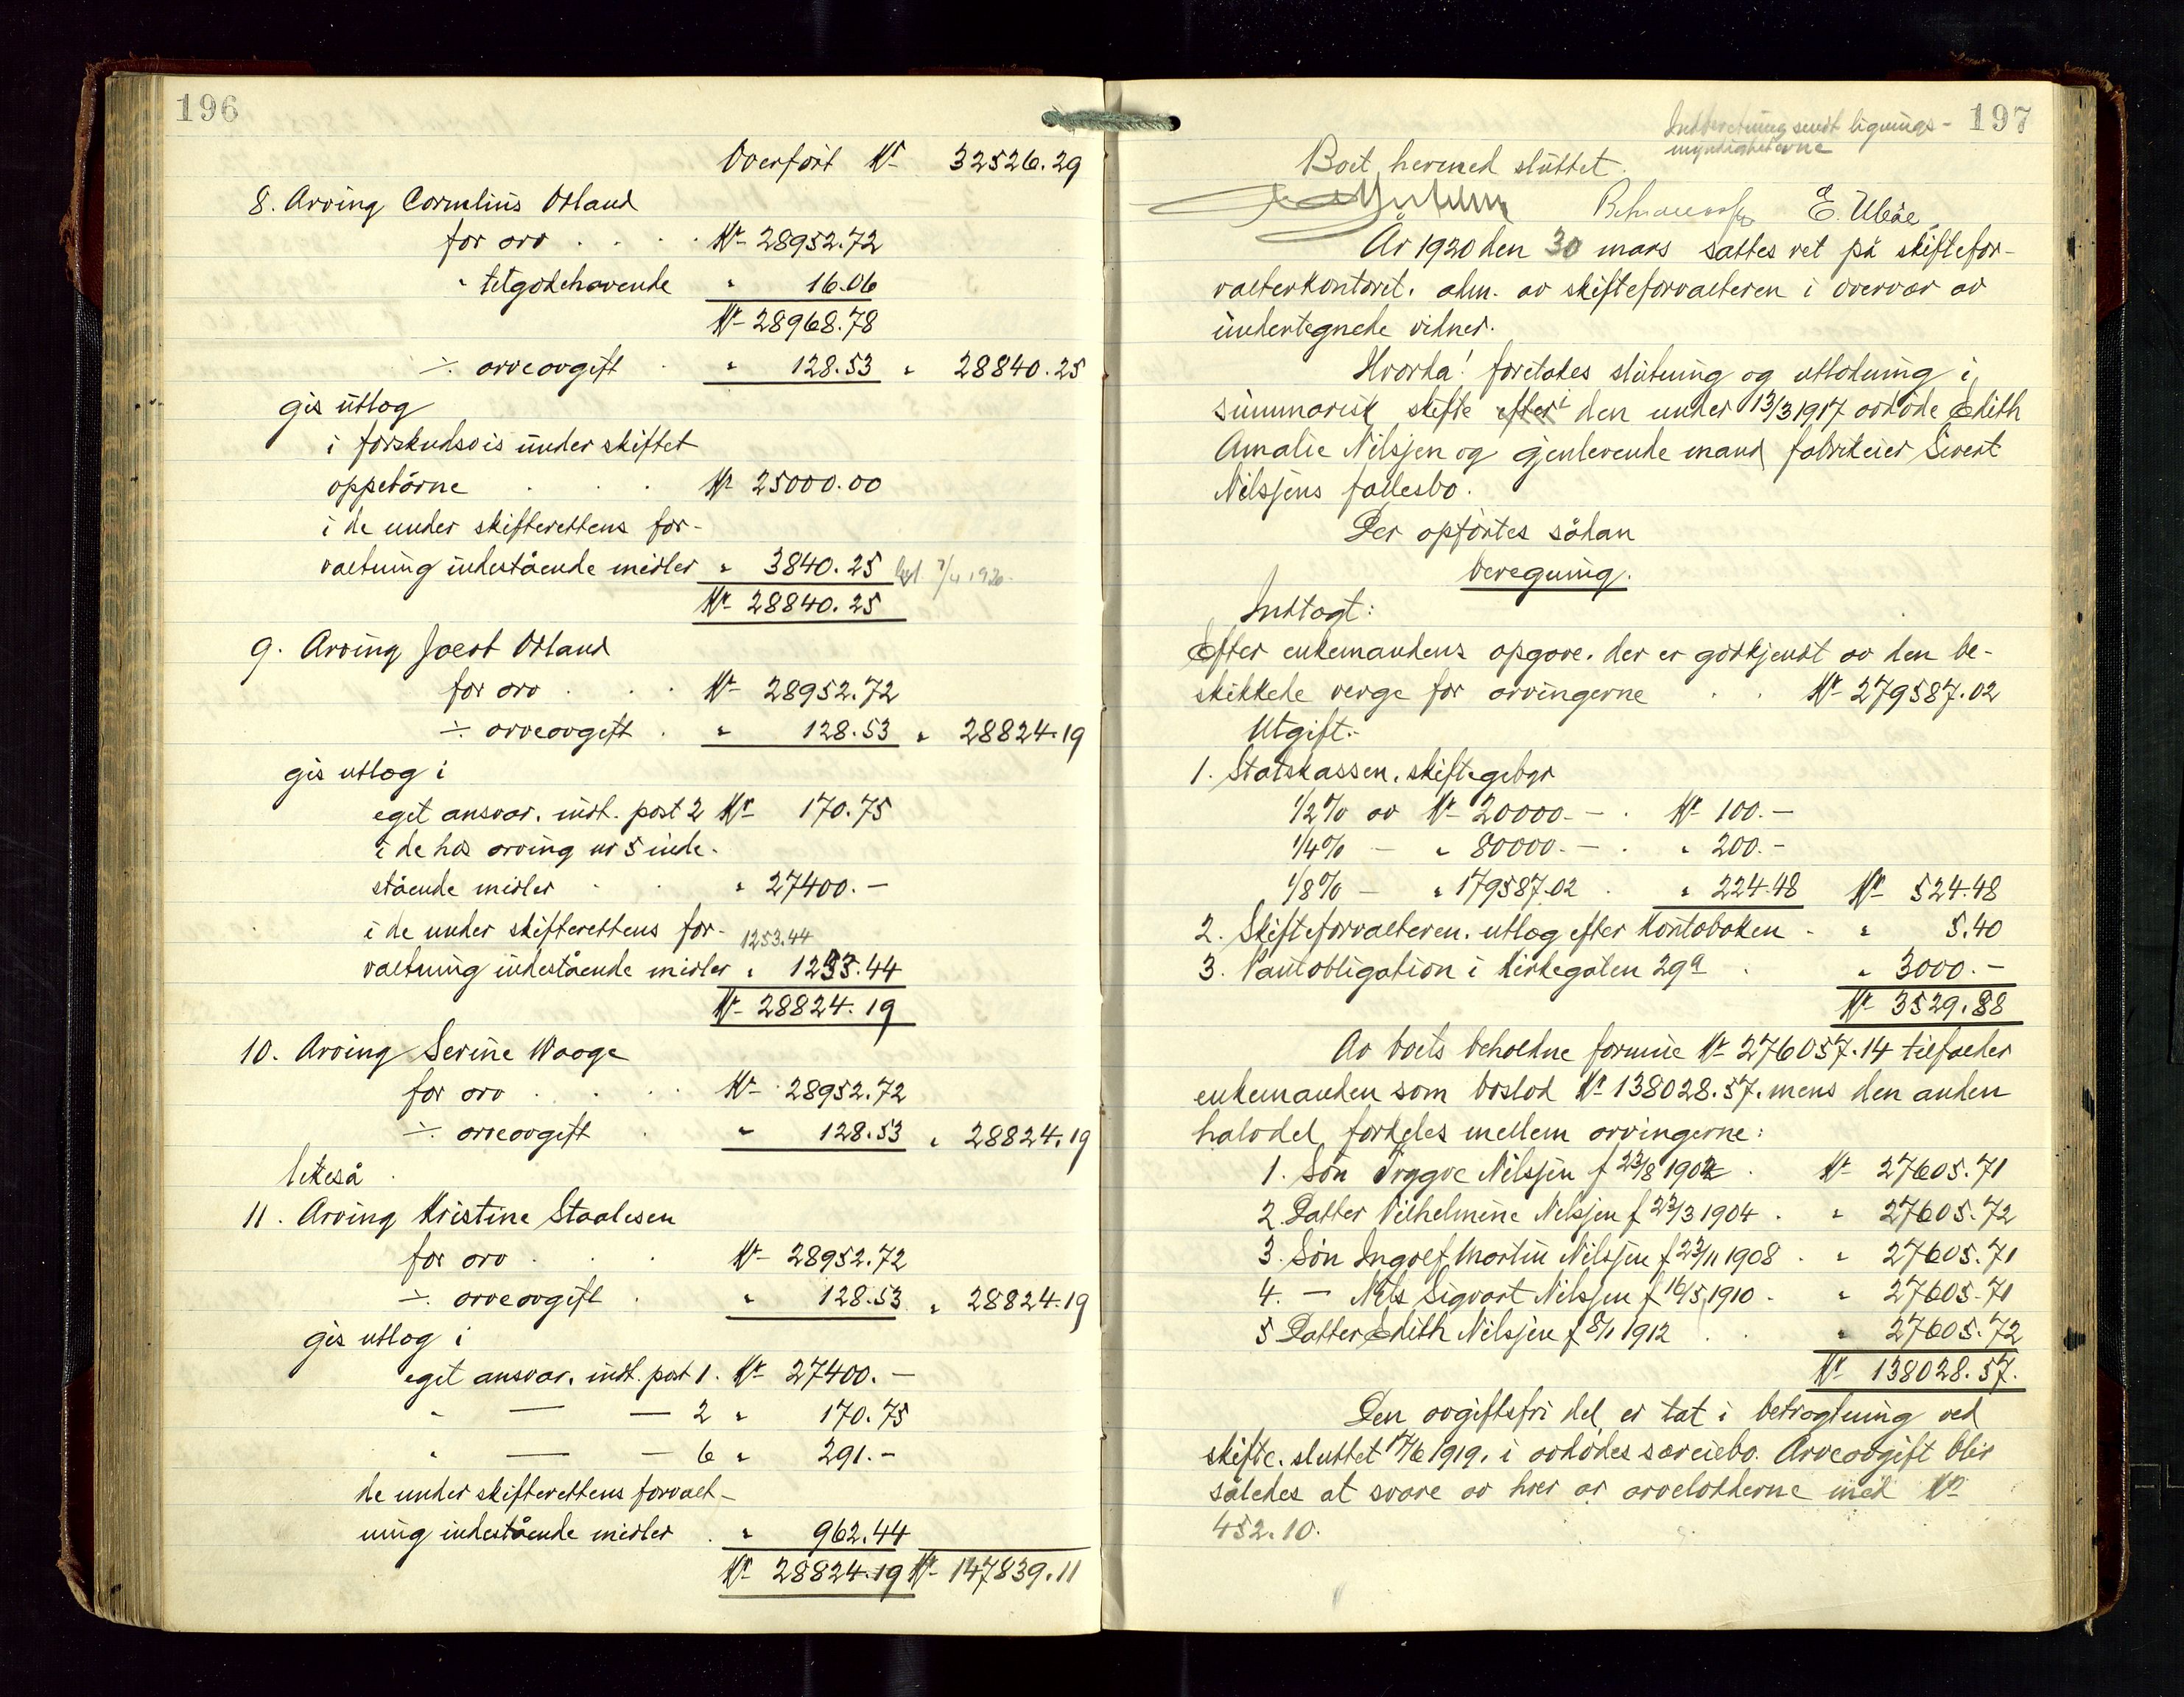 196
Overført Kr 32526.29
8. Arving Cornelius Østland
for arv . . . . Kr 28952.72
" tilgodehavende " 16.06
Kr 28968.78
÷ arveavgift . " 128.53 " 28840.25
gis utlæg
i forskudsvis under skiftet
oppebårne . . . Kr 25000.00
i de under skifterettens for-
valtning indestående midler " 3840.25 1920.
Kr 28840.25
9. Arving Joest Østland
for arv . . . Kr 28952.72
÷ arveavgift . " 128.53 " 28824.19
gis utlæg i
eget ansvar, indt. post 2 Kr 170.75
i de hos arving nr 5 inde-
stående midler . . " 27400.—
i de under skifterettens for- 1253.44
valtning indestående midler " 1253.44
Kr 28824.19
10. Arving Serine Waage
for arv . . . . Kr 28952.72
÷ arveavgift . " 128.53 " 28824.19
likeså .
11. Arving Kristine Staalesen
for arv . . . Kr 28952.72
÷ arveavgift . " 128.53 " 28824.19
gis utlæg i
eget ansvar, indt. post 1. Kr 27400.—
" — — 2 " 170.75
" — — 6 " 291.—
de under skifterettens forvalt-
ning indestående midler . " 962.44
Kr 28824.19 Kr 147839.11
197
Indberetning sendt lignings-
myndigheterne
Boet hermed sluttet.
E. Ubøe
År 1920 den 30 mars sattes ret på skiftefor-
valterkontoret, adm. av skifteforvalteren i overvær av
undertegnede vidner.
Hvorda! foretokes slutning og utlodning i
summarisk skifte efter i den under 13/3 1917 avdøde Edith
Amalie Nilsjen og gjenlevende mand fabrikeier Sivert
Nilsjens fællesbo.
Der opførtes sådan
beregning.
Indtægt:
Efter enkemandens opgave, der er godkjendt av den be-
skikkede verge for arvingerne . . Kr 279587.02
Utgift:
1. Statskassen, skiftegebyr
1/2% av Kr 20000.— . Kr 100.—
1/4% — " 80000.— . " 200.—
1/8% — " 179587.02 . " 224.48 Kr 524.48
2. Skifteforvalteren, utlæg efter Kontoboken . " 5.40
3. Pantobligation i Kirkegaten 29a . " 3000.—
Kr 3529.88
Av boets beholdne formue Kr 276057.14 tilfalder
enkemanden som boslod Kr 138028.57, mens den anden
halvdel fordeles mellem arvingerne:
1. Søn Trygve Nilsjen f 23/8 1902 . Kr 27605.71
2. Datter Vilhelmine Nilsjen f 23/3 1904 . " 27605.72
3. Søn Ingolf Martin Nilsjen f 23/11 1908 . " 27605.71
4. — Nils Sigvart Nilsjen f 16/5 1910 . " 27605.71
5 Datter Edith Nilsjen f 8/1 1912 . . " 27605.72
Kr 138028.57.
Den avgiftsfri del er tat i betragtning ved
skifte, sluttet 17/6 1919, i avdødes særeiebo. Arveavgift blir
således at svare av hver av arvelodderne med Kr
452.10.